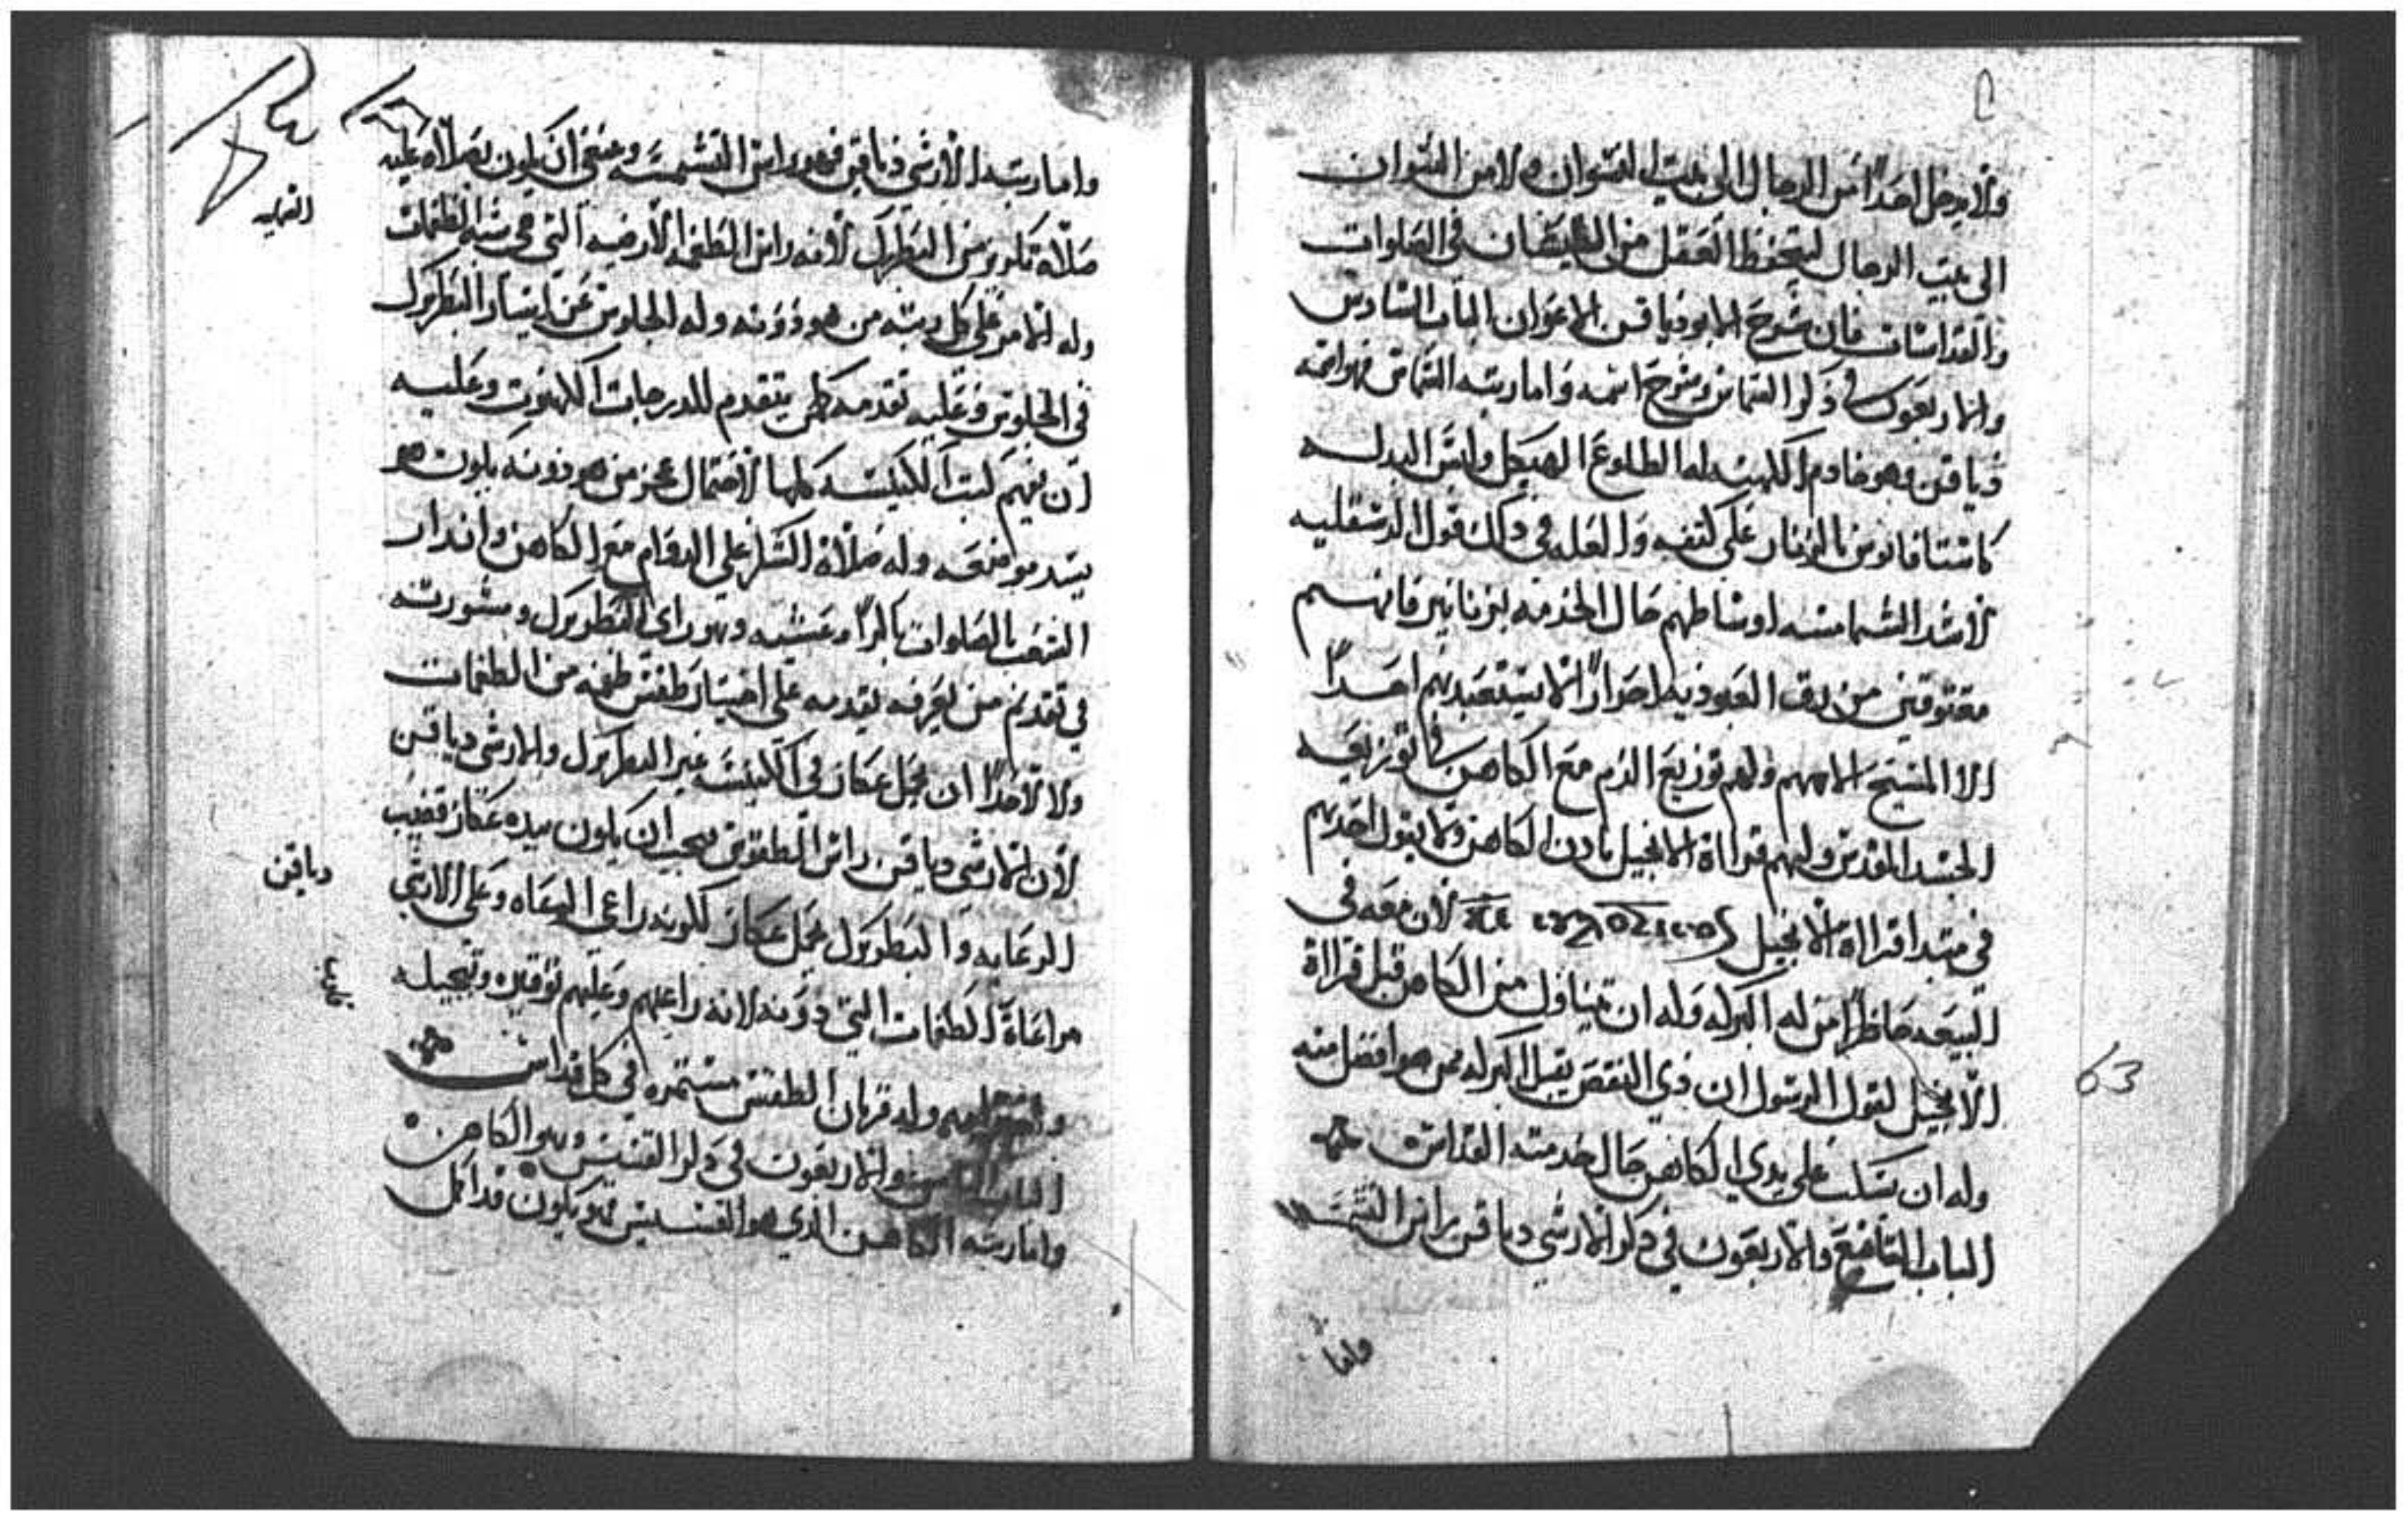 ولا يدخل احدًا من الرجال الى بيت النسوان ولا من النسوان
الى بيت الرجال ليتحفظ العقل من الطيشان في الصلوات
والقداسات فان شرح الابودياقن الاعوان الباب السادس
والاربعون في ذكر الشماس وشرح اسمه واما رتبه الشماس فهو اسمه
دياقن وهو خادم الكهنه له الطلوع الهيكل ولبس البدله
كاستفانوس بالزنار على كتفه والعله في ذلك قول الدسقليه
لاشد الشمامسه اوساطهم حال الخدمه بزنانير فانهم
معتوقين من رق العبوديه احرارًا لا يستعبدهم احدًا
الا المسيح الاههم ولهم توزيع الدم مع الكاهن في توزيعه
الجسد المقدس ولهم قراة الانجيل باذن الكاهن ولا يقول احدهم
في مبتدا قراة الانجيل لان معه في
البيعه حاظرًا من له البركه وله ان يتناول من الكاهن قبل قراة
الانجيل لقول الرسول ان ذي النقص يقبل البركه ممن هو افضل منه
وله ان يسكب على يدي الكاهن حال خدمته القداس
الباب السابع والاربعون في ذكر الارشي دياقن راس الشمامسه
واما
63
واما رتبه الارشي دياقن فهو راس الشمامسه وينبغي ان يكون بصلاه عليه
صلاة تكريز من البطريرك لانه راس الطغمه الارضيه التي هي شبه الطغمات
العقليه
وله الامر على كل رتبه من هو دونه وله الجلوس عن يسار البطريرك
في الجلوس وعليه تقدمه كلمن يتقدم للدرجات الكهنوت وعليه
ان يفهم كتب الكنيسه كلها لاحتمال عجز من هو دونه يكون هو
يسد موضعه وله صلاة الشكر على الدوام مع الكاهن وانذار
الشعب بالصلوات باكرًا وعشيه وبهو راى البطريرك ومشورته
في تقديم من يعرفه يقدمه على اختيار طقس طغمه من الطغمات
ولا لاحدًا ان يحمل عكاز في الكنيسه غير البطريرك والارشي دياقن
لان الارشي دياقن راس الطقوس يجب ان يكون بيده عكاز قضيب
الرعايه والبطريرك يحمل عكاز لكونه راعي الرعاه وعلى الارشي
دياقن
مراعاة الطغمات التي دونه لانه راعيهم وعليهم توقيره وتبجيله
وله قربان الطقس مستمره في كل قداس
الباب الثامن والاربعون في ذكر القسيس وهو الكاهن
واما رتبه الكاهن الذي هو القسيس فهو يكون قد اكمل